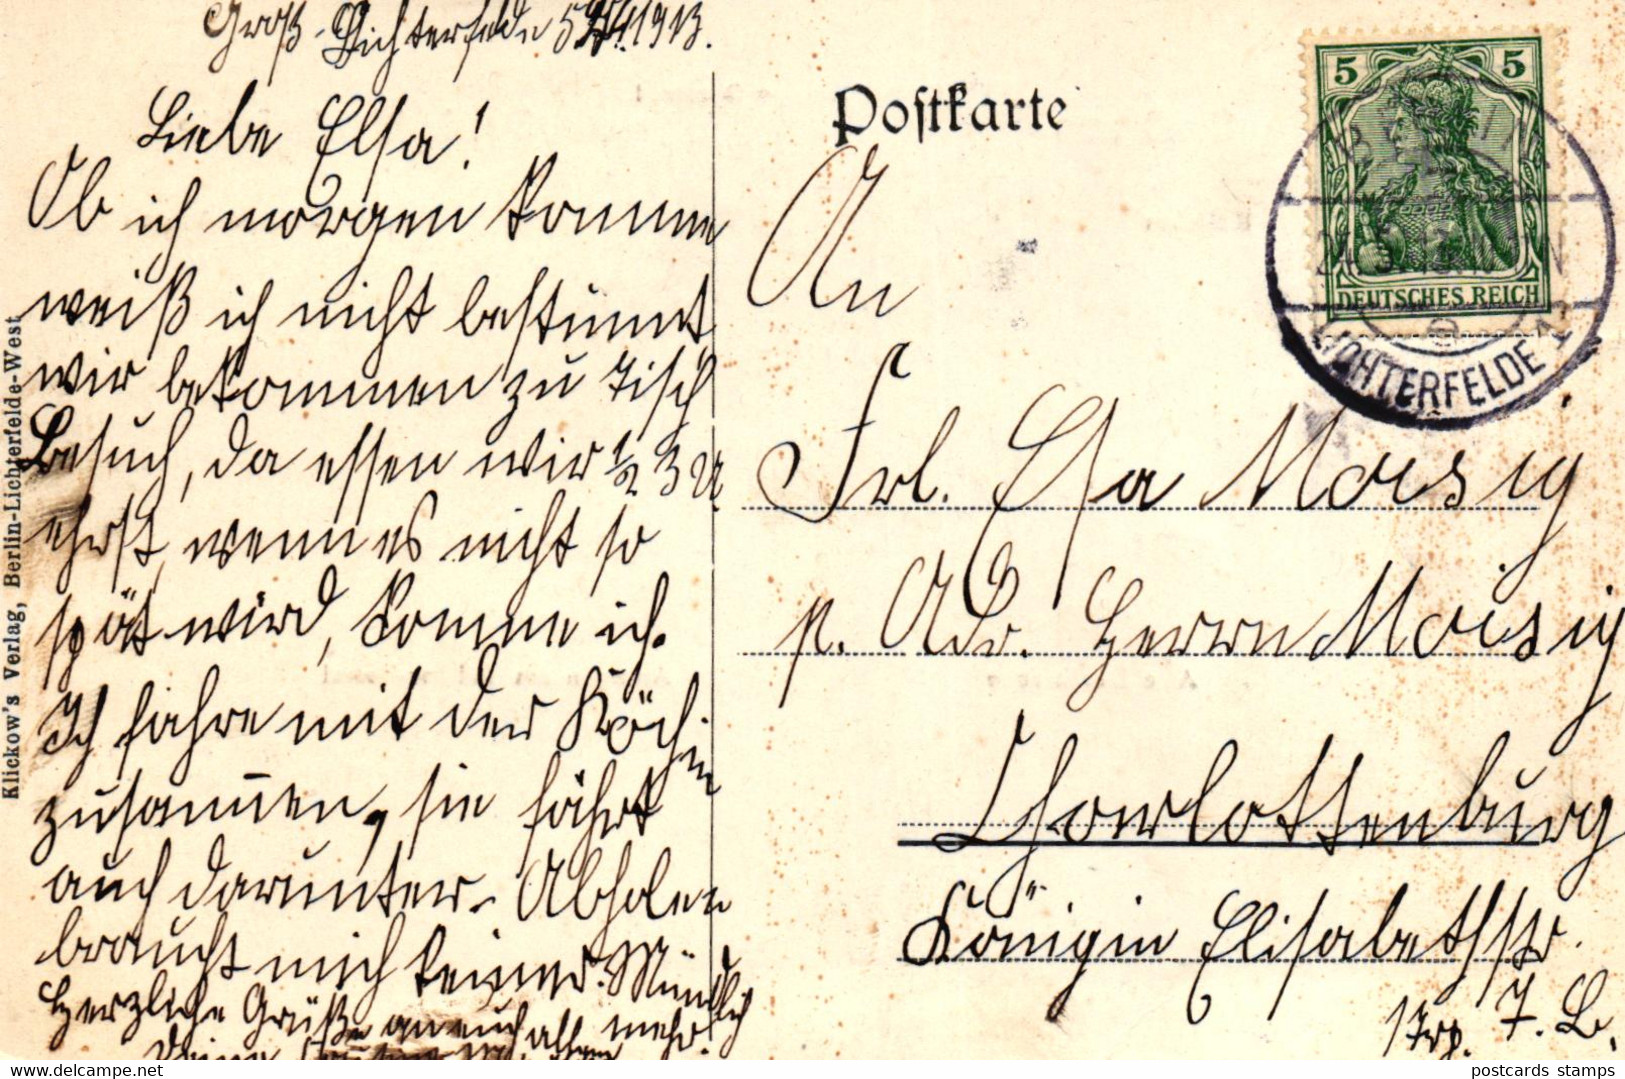 Groß-Lichterfelde 1913.
Liebe Elsa!
Ob ich morgen komme
weiß ich nicht bestimmt
wir bekommen zu Tisch
Besuch, da essen wir ½ 3 U
ehrst, wenn es nicht so
spät wird, komme ich.
Ich fahre mit der Köchin
zusammen, sie fährt
auch darunter. Abholen
braucht mich keiner. Mündlich
mehr.
Herzliche Grüße an euch alle
Deine
Klickow's Verlag, Berlin-Lichterfelde-West
Postkarte
5 5
DEUTSCHES REICH
BERLIN
LICHTERFELDE 1
An
Frl. Elsa Moisig
p. Adr. Herrn Moisig
Charlottenburg
Königin Elisabethstr.